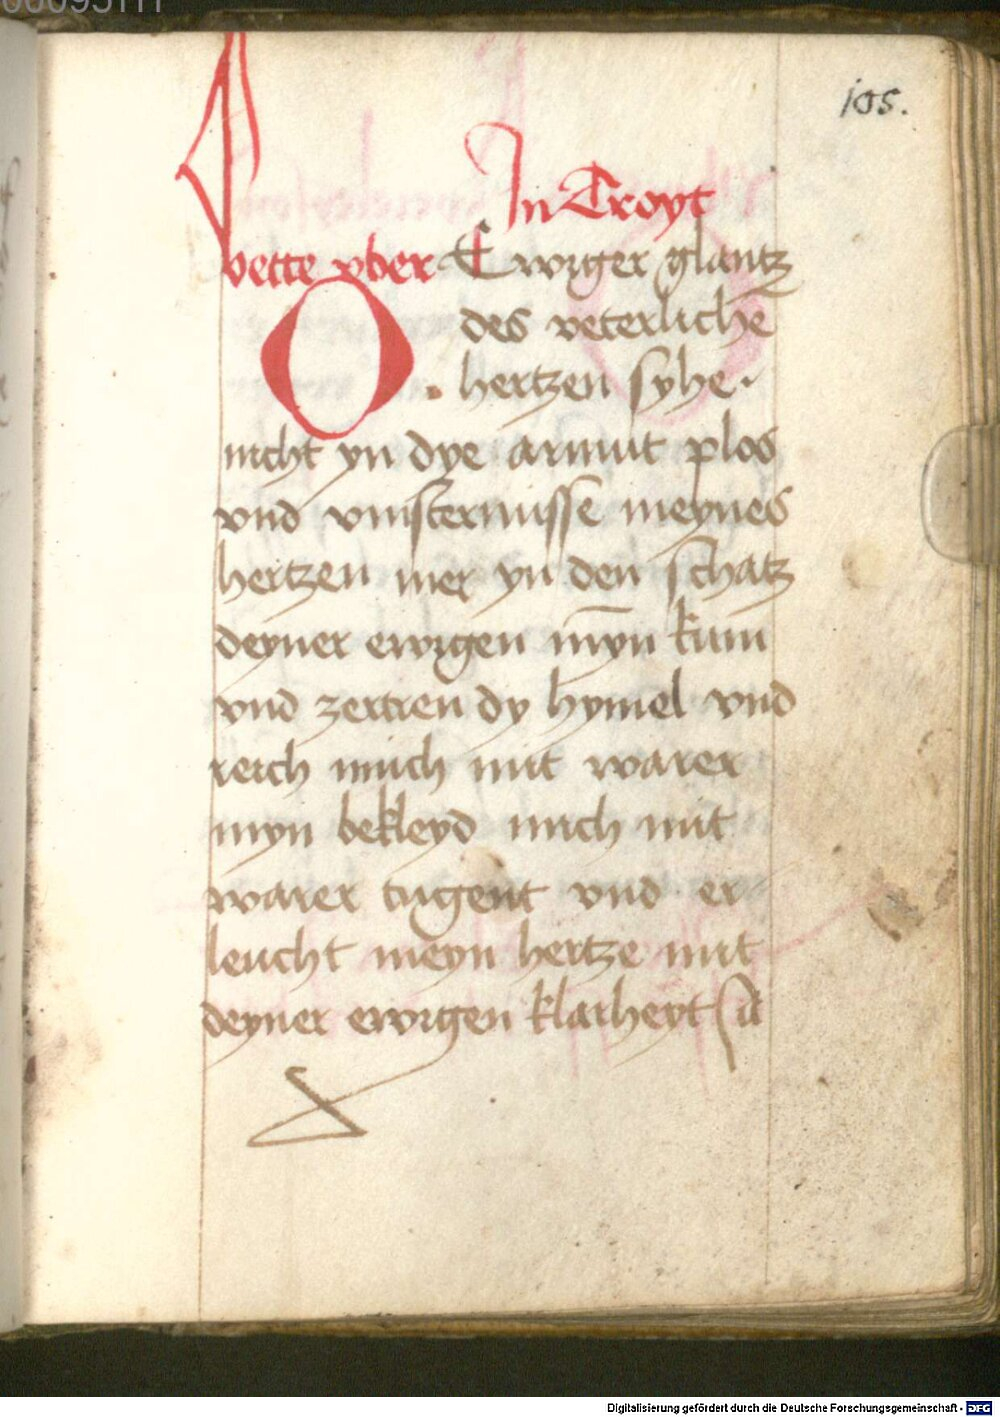 105.
In Troyt
bette vber Ewiger glantz
O des veterlichē
hertzen syhe.
nicht yn dye armut plos
vnd vinsternusse meynes
hertzen mer yn den schatz
deyner ewigen myn kum
vnd zertren dy hymel vnd
reich mich mit warer
myn bekleyd mich mit
warer tugent vnd er
leucht meyn hertze mit
deyner ewigen klarheyt
Digitalisierung gefördert durch die Deutsche Forschungsgemeinschaft - DFG